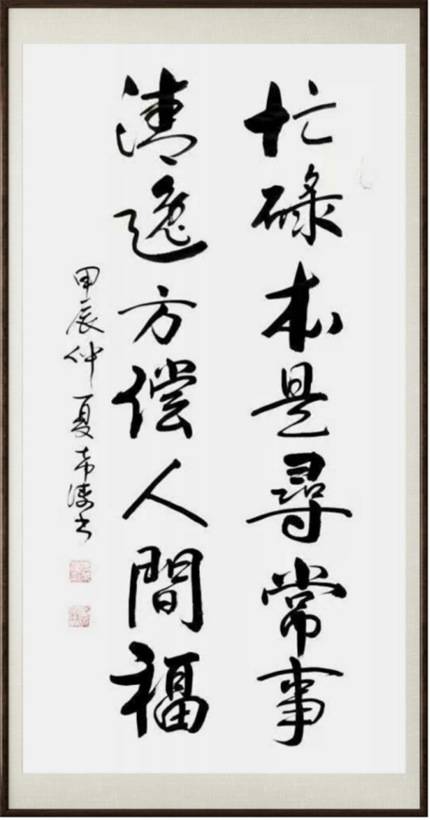 忙碌本是尋常事
清逸方偿人間福
甲辰仲夏